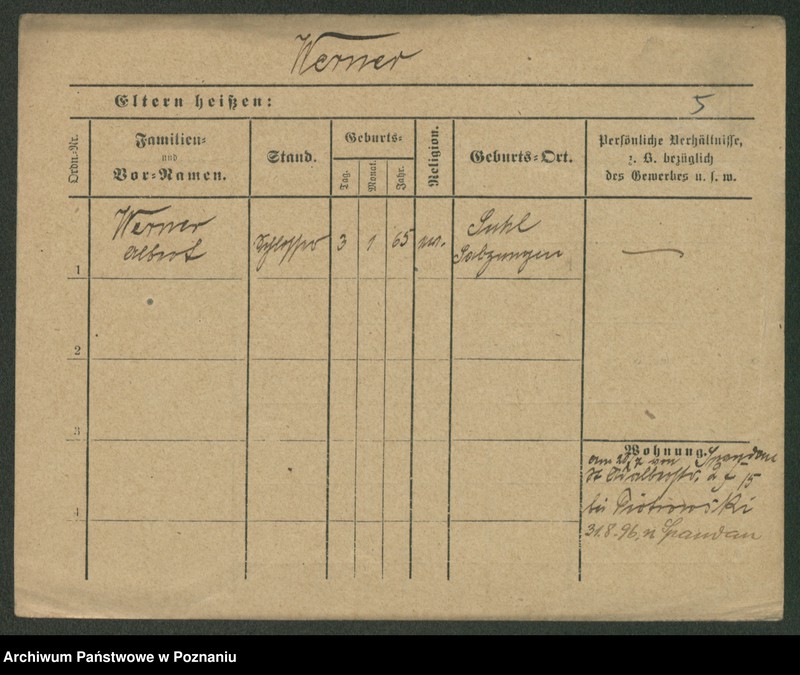 Werner
Eltern heißen:
5
Ordn.-Nr.
Familien-
und
Vor-Namen.
Stand.
Geburts-
Tag.
Monat.
Jahr.
Religion.
Geburts-Ort.
Persönliche Verhältnisse,
z. B. bezüglich
des Gewerbes u. s. w.
1
Werner
Albert
Schlosser
3
1
65
Suhl
Salzungen
—
2
3
4
Wohnung.
am von Spandau
15
bei Piotrowski
31.8.96. n Spandau
Archiwum Państwowe w Poznaniu